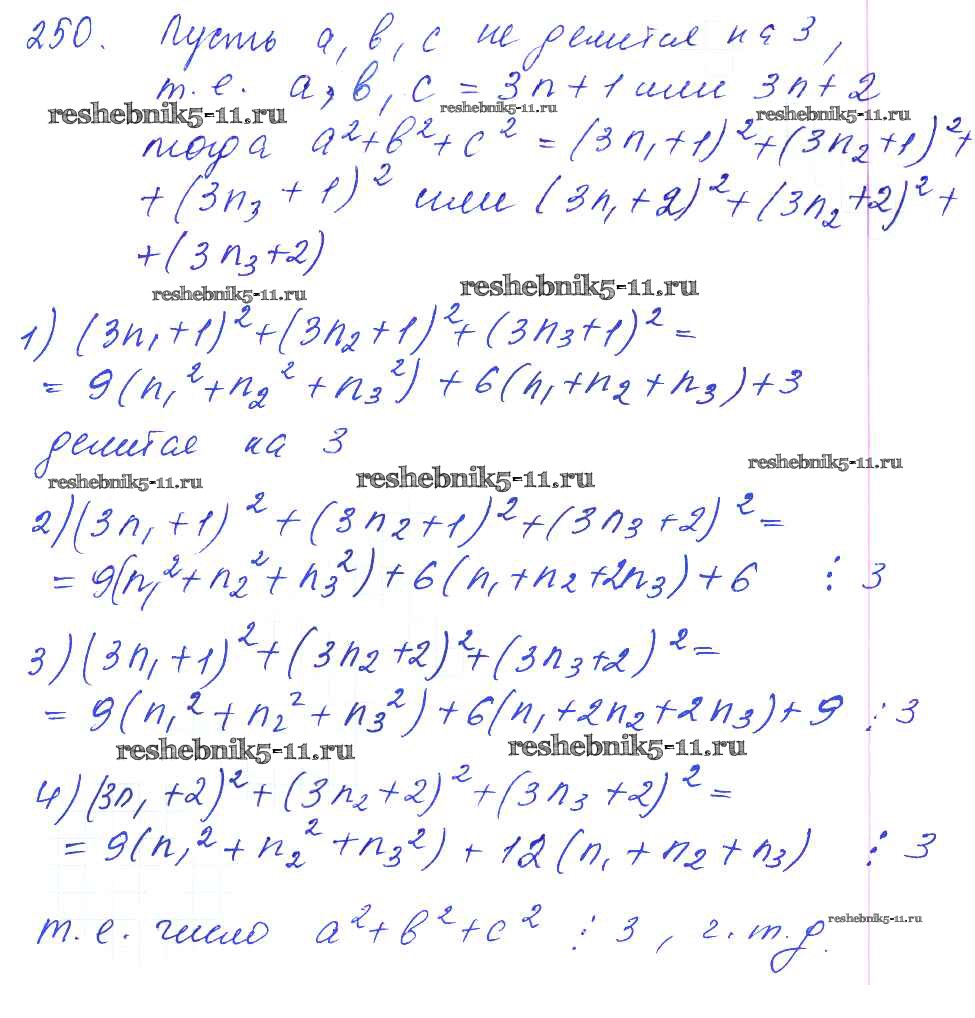 250. Пусть a, b, c не делится на 3,
т.е. a, b, c = 3n + 1 или 3n + 2
reshebnik5-11.ru reshebnik5-11.ru reshebnik5-11.ru
тогда a² + b² + c² = (3n₁ + 1)² + (3n₂ + 1)² +
+ (3n₃ + 1)² или (3n₁ + 2)² + (3n₂ + 2)² +
+ (3n₃ + 2)
reshebnik5-11.ru reshebnik5-11.ru
1) (3n₁ + 1)² + (3n₂ + 1)² + (3n₃ + 1)² =
= 9(n₁² + n₂² + n₃²) + 6(n₁ + n₂ + n₃) + 3
делится на 3
reshebnik5-11.ru reshebnik5-11.ru reshebnik5-11.ru
2) (3n₁ + 1)² + (3n₂ + 1)² + (3n₃ + 2)² =
= 9(n₁² + n₂² + n₃²) + 6(n₁ + n₂ + 2n₃) + 6 ⋮ 3
3) (3n₁ + 1)² + (3n₂ + 2)² + (3n₃ + 2)² =
= 9(n₁² + n₂² + n₃²) + 6(n₁ + 2n₂ + 2n₃) + 9 ⋮ 3
reshebnik5-11.ru reshebnik5-11.ru
4) (3n₁ + 2)² + (3n₂ + 2)² + (3n₃ + 2)² =
= 9(n₁² + n₂² + n₃²) + 12(n₁ + n₂ + n₃) ⋮ 3
т.е. число a² + b² + c² ⋮ 3, ч.т.д.
reshebnik5-11.ru